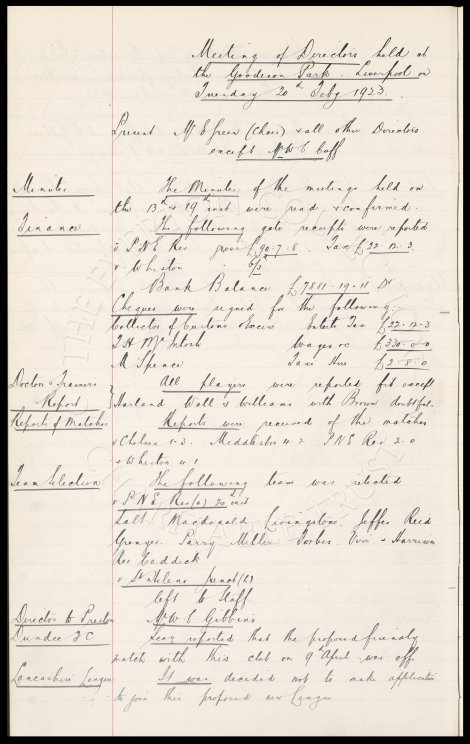 Meeting of Directors held at
the Goodison Park. Liverpool on
Tuesday 20th Feby 1923.
Present Mr E Green (Chair) & all other Directors
except Mr W C Cuff
Minutes The Minutes of the meetings held on
the 13th & 19th inst were read & confirmed.
Finance The following gate receipts were reported
v P.N.E Res gross £90.7.8. Tax £22.12.3
v Whiston 6/3
Bank Balance £7881-19-11 Dr
Cheques were signed for the following
Collector of Customs & Excise Entertn Tax £22-12-3
T.H. McIntosh Wages &c £330-0-0
M Spence Taxi Hire £2-8-0
Doctor & Trainers All players were reported fit except
Report Harland Wall & Williams with Brown doubtful.
Reports of Matches Reports were received of the matches
v Chelsea 1-3. Middlesbro 4-2 P.N.E Res 2-0
& Whiston 4-1
Team Selection The following team was selected
v P.N.E. Res (a) 24th inst
Salt Macdonald Livingstone, Jeffes Reid
Grenyer. Parry Miller Forbes. & Harrison
Res Caddick
v St Helens (a)
left to Staff
Director to Preston Mr W C Gibbins
Dundee F C Secy reported that the proposed friendly
match with this club on 9th April was off
Lancashire League It was decided not to make application
to join this proposed new League